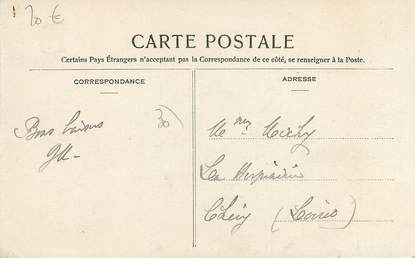 70 €
CARTE POSTALE
Certains Pays Étrangers n'acceptant pas la Correspondance de ce côté, se renseigner à la Poste.
CORRESPONDANCE
ADRESSE
30
Bons baisers
La
Cléry (Loiret)